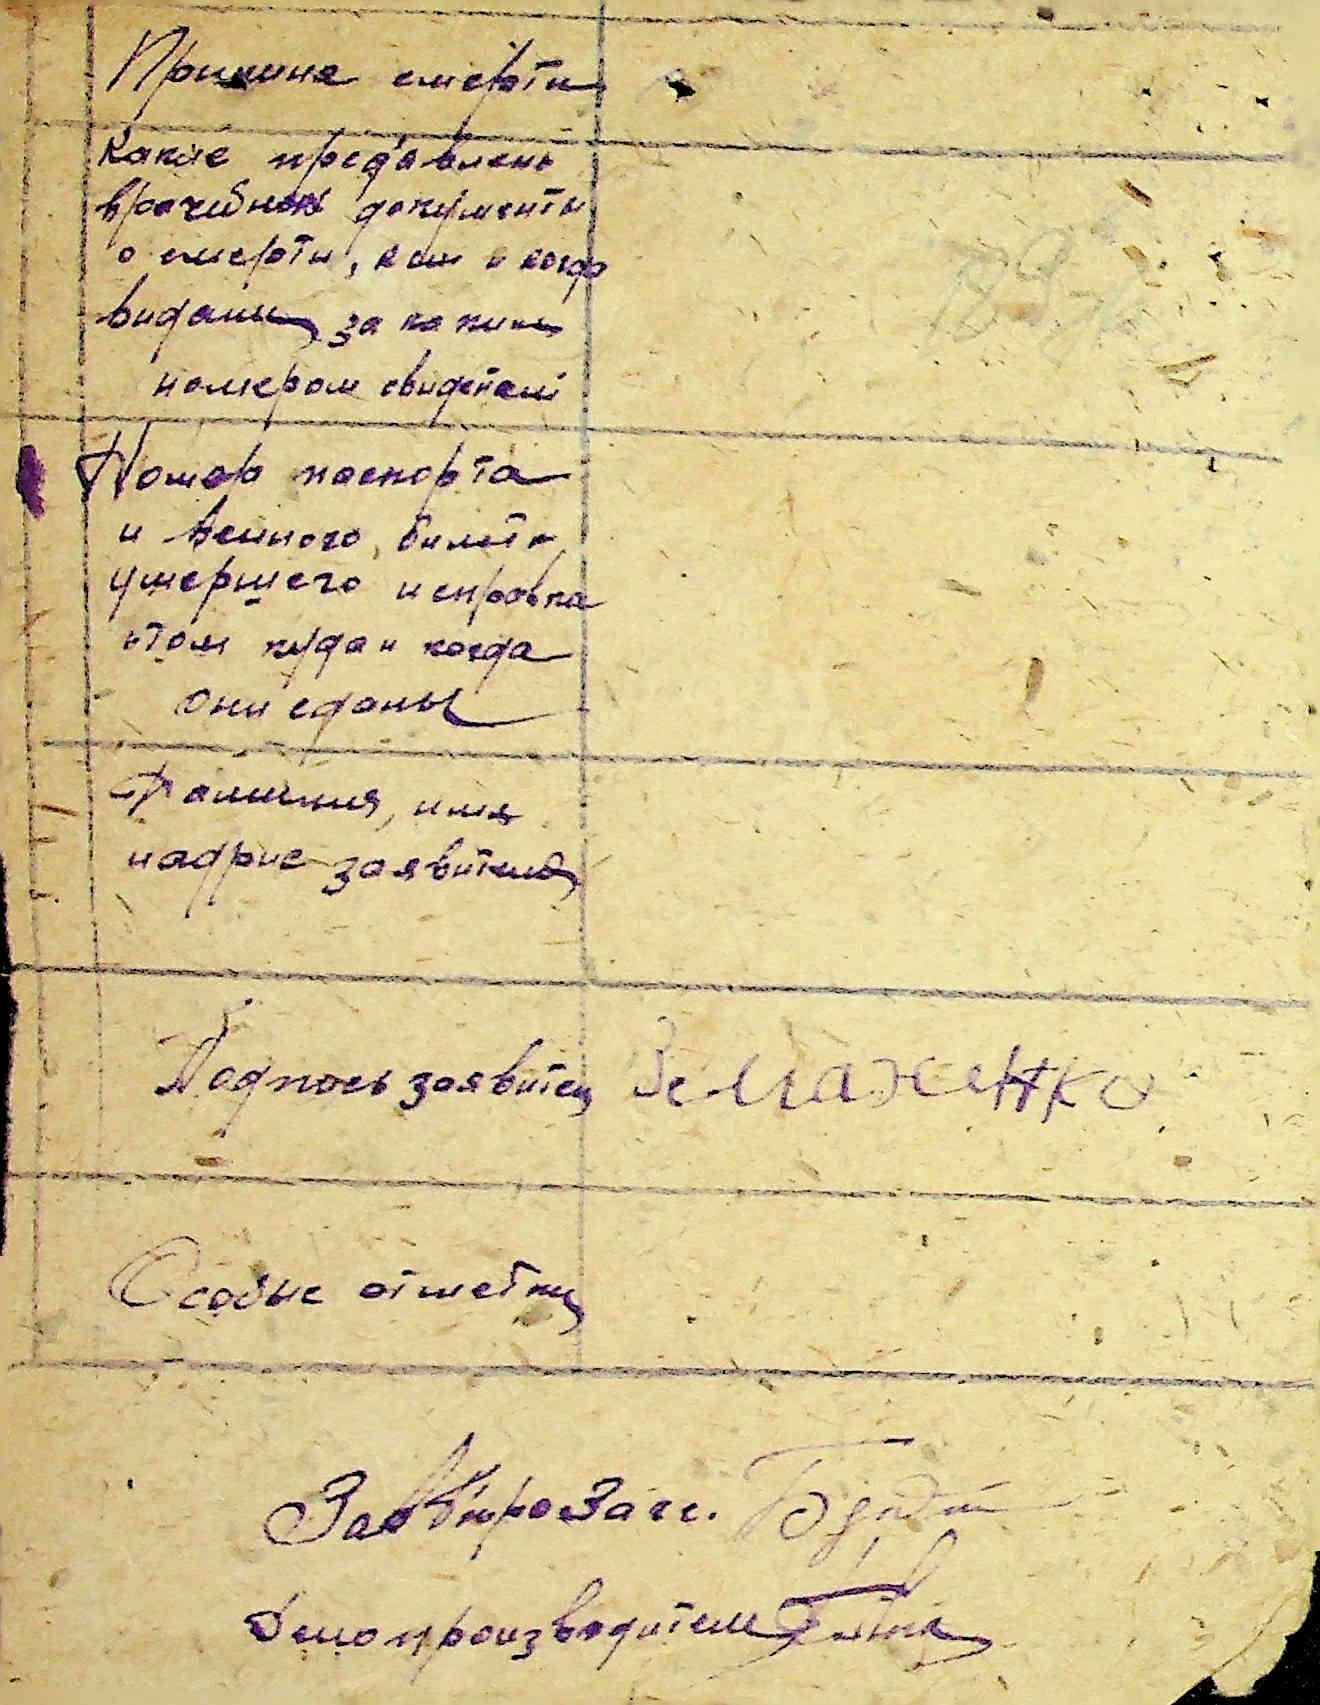 Причина смерти
Какие предавлены
врачебные документы
о смерти, кем и когда
видани за каким
номером свидетел
Номер паспорта
и венного билета
умершего и справка
о том куда и когда
они сданы
Фамилия, имя
и адрис заявителя
Подпись заявител
Особые отметки
Зав бюро Загс.
Делопроизводител